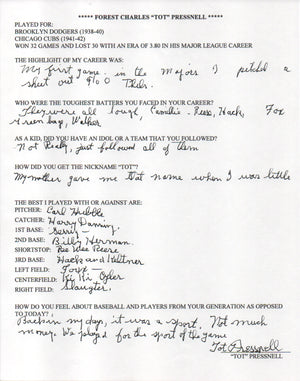 ***** FOREST CHARLES "TOT" PRESSNELL *****
PLAYED FOR:
BROOKLYN DODGERS (1938-40)
CHICAGO CUBS (1941-42)
WON 32 GAMES AND LOST 30 WITH AN ERA OF 3.80 IN HIS MAJOR LEAGUE CAREER
THE HIGHLIGHT OF MY CAREER WAS:
My first game in the Majors I pitched a
shut out 9 to 0 Phils.
WHO WERE THE TOUGHEST BATTERS YOU FACED IN YOUR CAREER?
They were all tough, Reese, Hack, Fox
Walker
AS A KID, DID YOU HAVE AN IDOL OR A TEAM THAT YOU FOLLOWED?
Not Really, just followed all of them
HOW DID YOU GET THE NICKNAME "TOT"?
My mother gave me that name when I was little
THE BEST I PLAYED WITH OR AGAINST ARE:
PITCHER: Carl Hubble
CATCHER: Harry Danning
1ST BASE:
2ND BASE: Billy Herman
SHORTSTOP: Pee Wee Reese
3RD BASE: Hack and Keltner
LEFT FIELD: Foxx
CENTERFIELD:
RIGHT FIELD: Slaughter
HOW DO YOU FEEL ABOUT BASEBALL AND PLAYERS FROM YOUR GENERATION AS OPPOSED
TO TODAY?
Back in my days, it was a sport. Not much
money. We played for the sport of the game
Tot Pressnell
"TOT" PRESSNELL